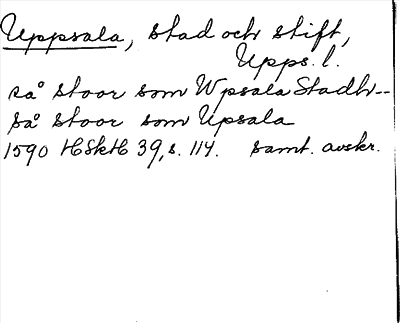 Uppsala, stad och stift,
Upps. l.
så stoor som Wpsala Stadh--
så stoor som Upsala
1590 HSkH 39, s. 114. samt. avskr.